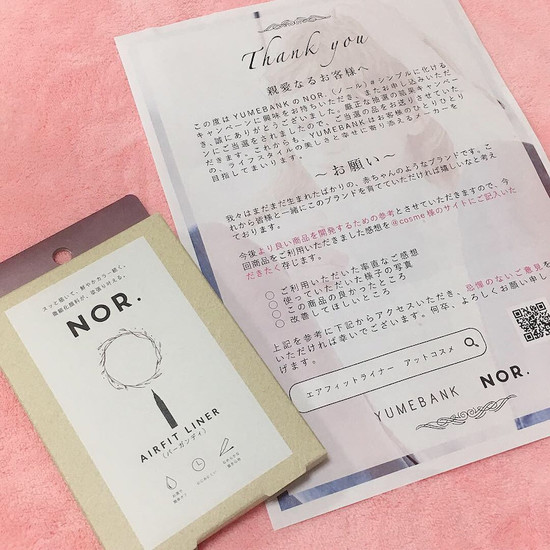 Thank you
親愛なるお客様へ
この度はYUMEBANKのNOR.（ノール）#シンプルに化ける
キャンペーンに興味をお持ちいただき、またお申し込みいただ
き、誠にありがとうございました。厳正な抽選の結果キャンペー
ンにご当選をされましたので、ご当選の品をお送りさせていた
だきます。これからも、YUMEBANKはお客様のひとりひとり
の、ライフスタイルの美しさと幸せに寄り添えるメーカーを
目指してまいります。
～お願い～
我々はまだまだ生まれたばかりの、赤ちゃんのようなブランドです。こ
れから皆様と一緒にこのブランドを育てていただければ嬉しいなと考え
ております。
今後より良い商品を開発するための参考とさせていただきますので、今
回商品をご利用いただきました感想を@cosme様のサイトにご記入いた
だきたく存じます。
○ ご利用いただいた率直なご感想
○ 使っていただいた様子の写真
○ この商品の良かったところ
○ 改善してほしいところ
上記を参考に下記からアクセスいただき、忌憚のないご意見を
いただければ幸いでございます。何卒、よろしくお願い申し
上げます。
エアフィットライナー アットコスメ
YUMEBANK NOR.
スッと描いて、鮮やかカラー続く。
NOR.
AIRFIT LINER
(バーガンディ)